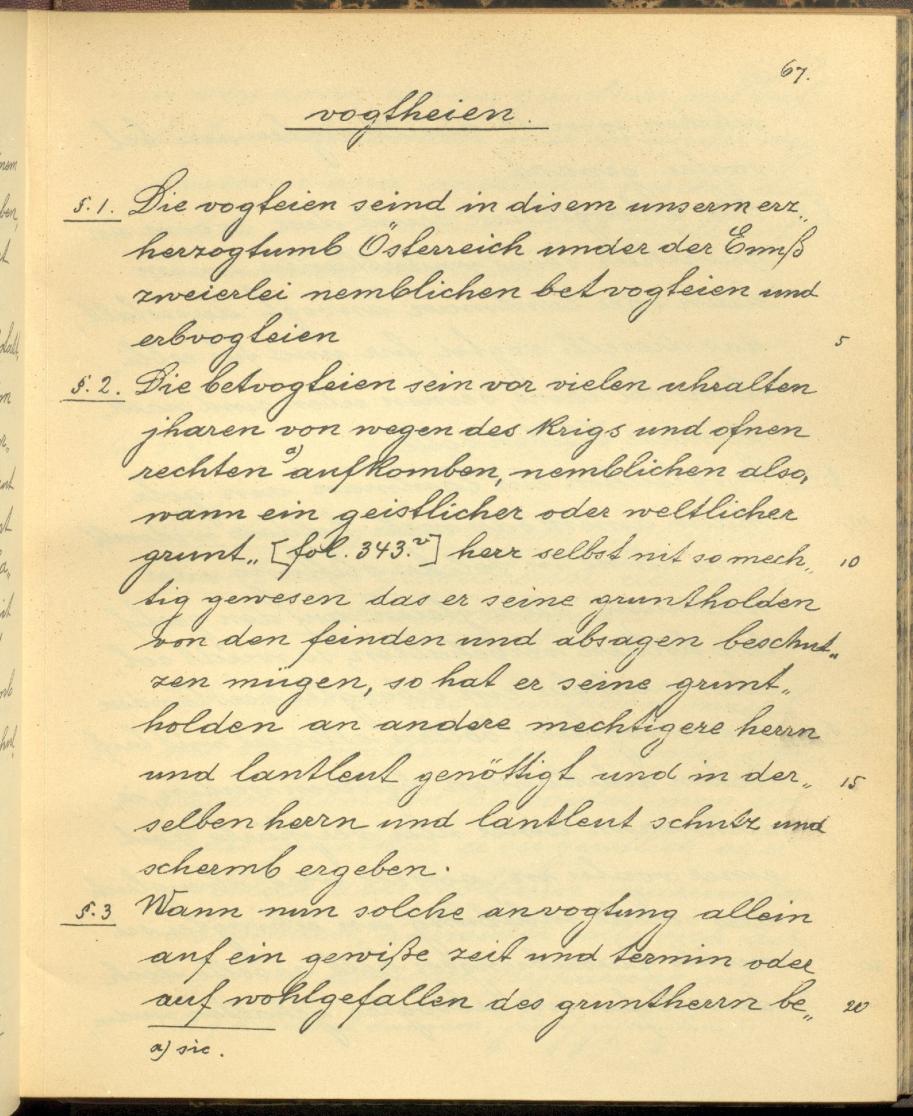 67.
vogtheien.
§. 1. Die vogteien seind in disem unserm erz„
herzogtumb Österreich under der Ennß
zweierlei nemblichen betvogteien und
erbvogteien 5
§. 2. Die betvogteien sein vor vielen uhralten
jharen von wegen des krigs und ofnen
rechten a) aufkomben, nemblichen also,
wann ein geistlicher oder weltlicher
grunt„ [fol. 343.v] herr selbst nit so mech„ 10
tig gewesen das er seine gruntholden
von den feinden und absagen beschut„
zen mügen, so hat er seine grunt„
holden an andere mechtigere herrn
und lantleut genöttigt und in der„ 15
selben herrn und lantleut schutz und
schermb ergeben.
§. 3 Wann nun solche anvogtung allein
auf ein gewiße zeit und termin oder
auf wohlgefallen des gruntherrn be„ 20
a) sic.